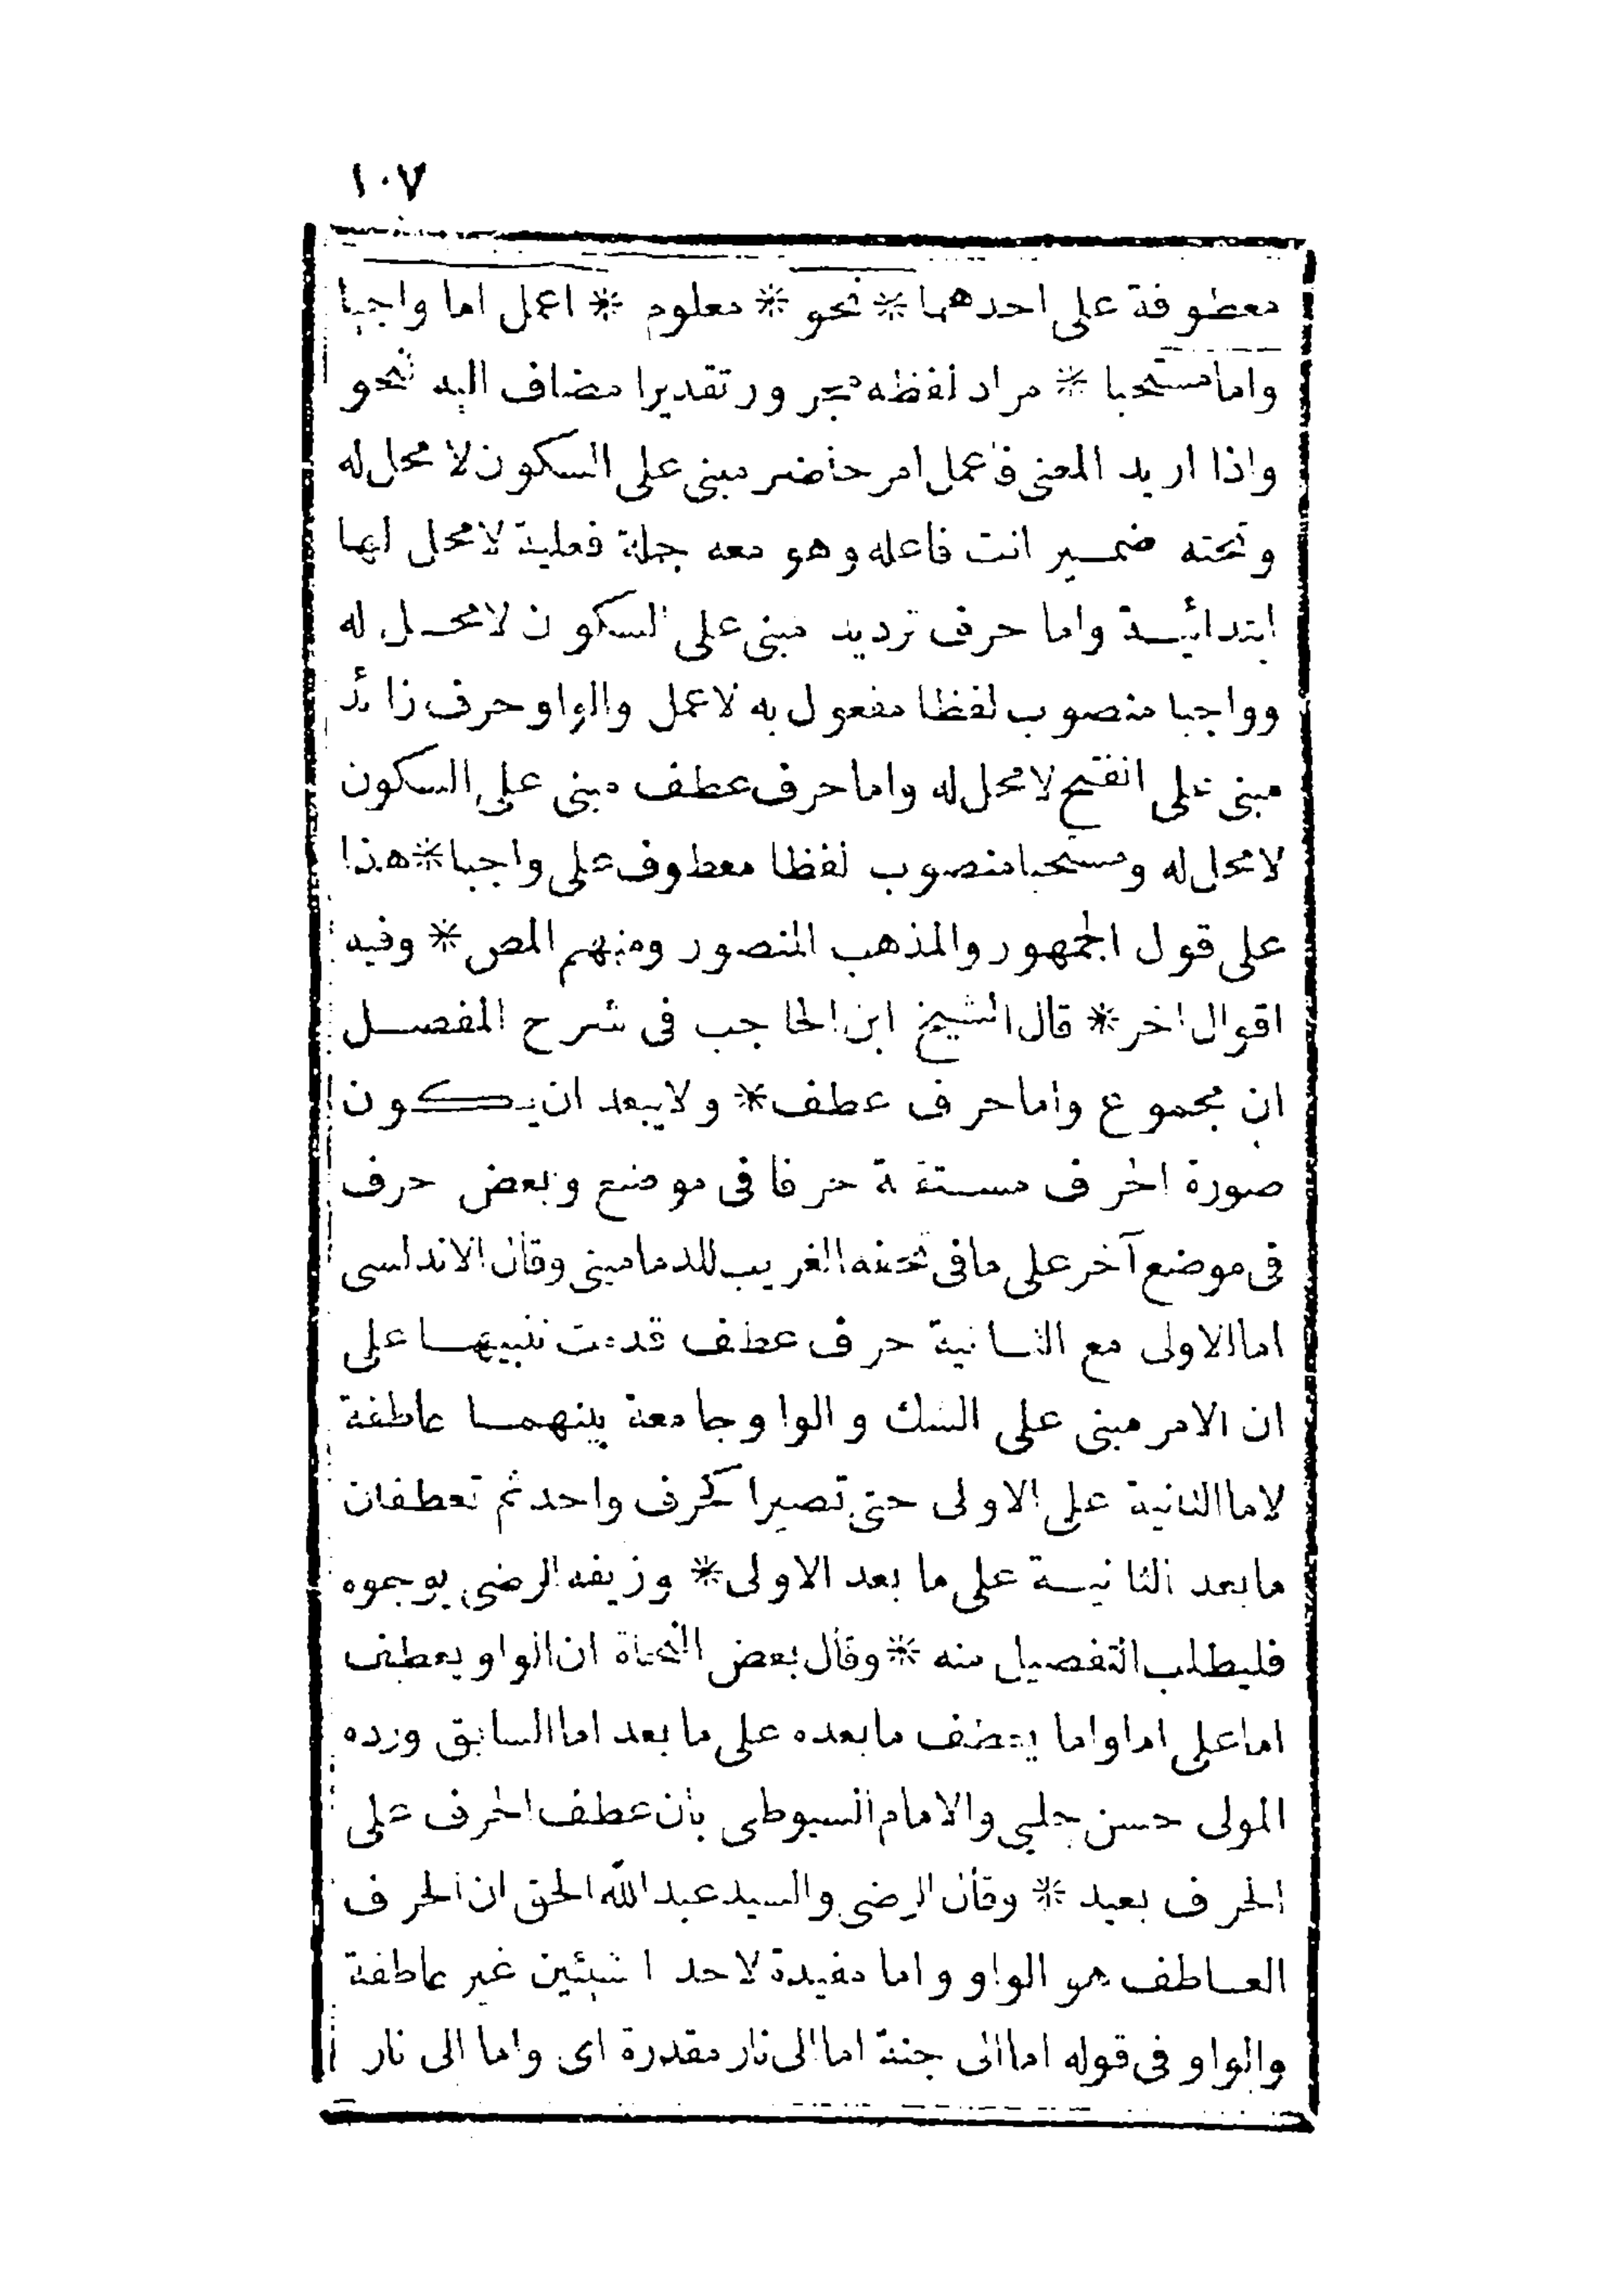 ١٠٧
معطوفة على احدهما * نحو * معلوم * اعمل اما واجبا
واما مستحبا * مراد لفظه مجرور تقديرا مضاف اليه نحو
واذا اريد المعنى فاعمل امر حاضر مبنى على السكون لا محل له
وتحته ضمير انت فاعله وهو معه جملة فعلية لا محل لها
ابتدائية واما حرف ترديد مبنى على السكون لا محل له
وواجبا منصوب لفظا مفعول به لاعمل والواو حرف زائد
مبنى على الفتح لا محل له واما حرف عطف مبنى على السكون
لا محل له ومستحبا منصوب لفظا معطوف على واجبا * هذا
على قول الجمهور والمذهب المنصور ومنهم المص * وفيه
اقوال اخر * قال الشيخ ابن الحاجب فى شرح المفصل
ان مجموع واما حرف عطف * ولا يبعد ان يكون
صورة الحرف مستقلة حرفا فى موضع وبعض حرف
فى موضع آخر على ما فى تحفه الغريب للدمامينى وقال الاندلسى
اما الاولى مع الثانية حرف عطف قدمت تنبيها على
ان الامر مبنى على الشك والواو جامعة بينهما عاطفة
لاما الثانية على الاولى حتى تصيرا كحرف واحد ثم تعطفان
ما بعد الثانية على ما بعد الاولى * وزيفه الرضى بوجوه
فليطلب التفصيل منه * وقال بعض النحاة ان الواو يعطف
اما على اما واما يعطف ما بعده على ما بعد اما السابق ورده
المولى حسن چلبى والامام السيوطى بان عطف الحرف على
الحرف بعيد * وقال الرضى والسيد عبد الله الحق ان الحرف
العاطف هو الواو واما مفيدة لاحد الشيئين غير عاطفة
والواو فى قوله اما الى جنة اما الى نار مقدرة اى واما الى نار